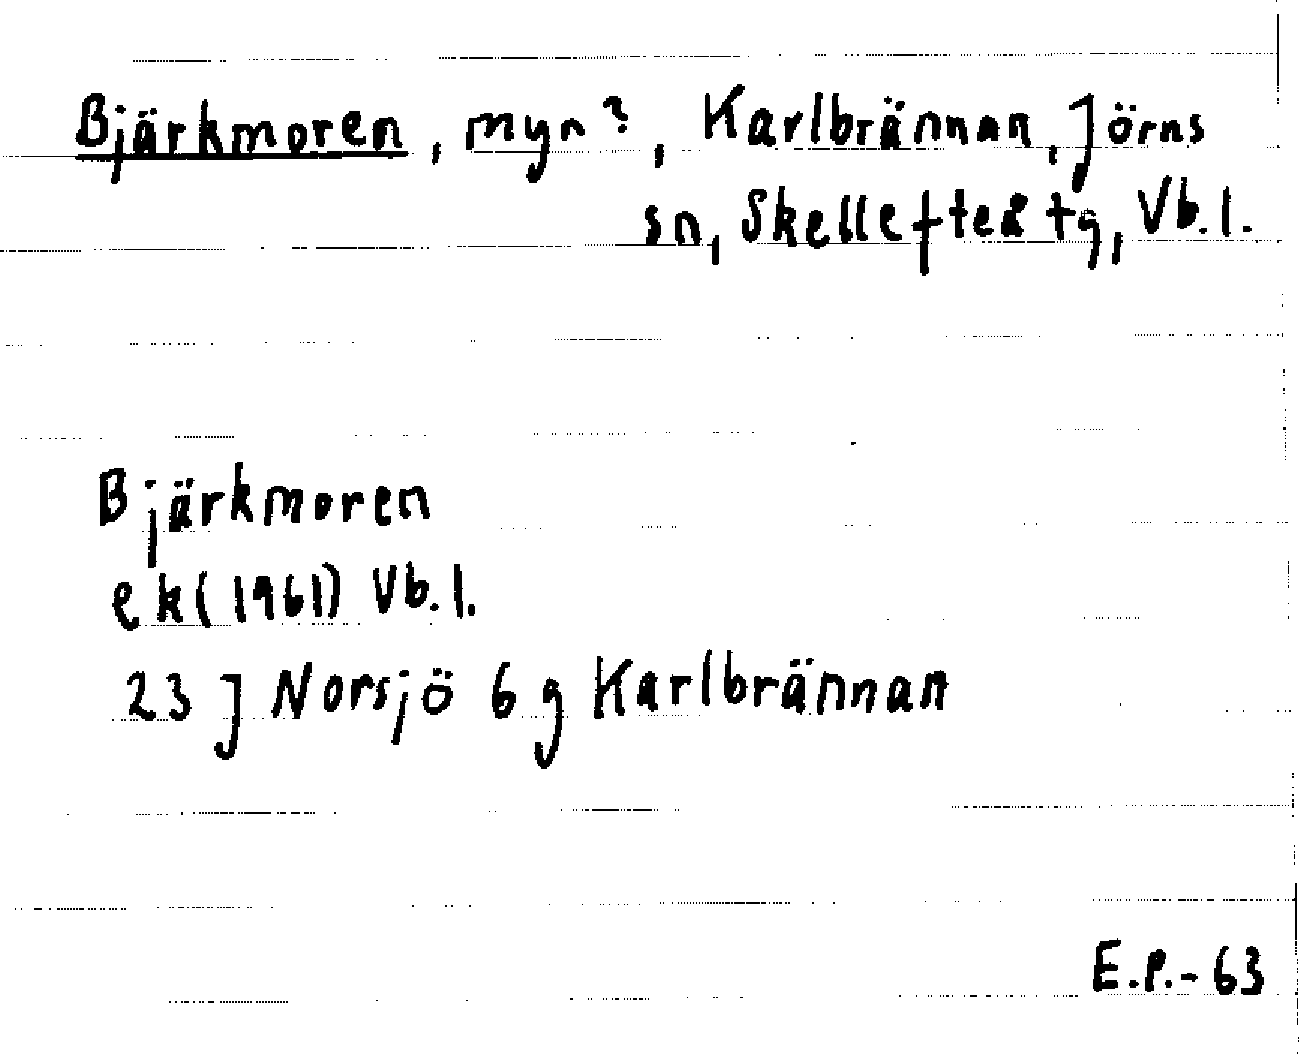 Bjärkmoren, myr?, Karlbrännan, Jörns
sn, Skellefteå tg, Vb.l.
Bjärkmoren
ek (1961) Vb.l.
23 J Norsjö 6 g Karlbrännan
E.P.-63